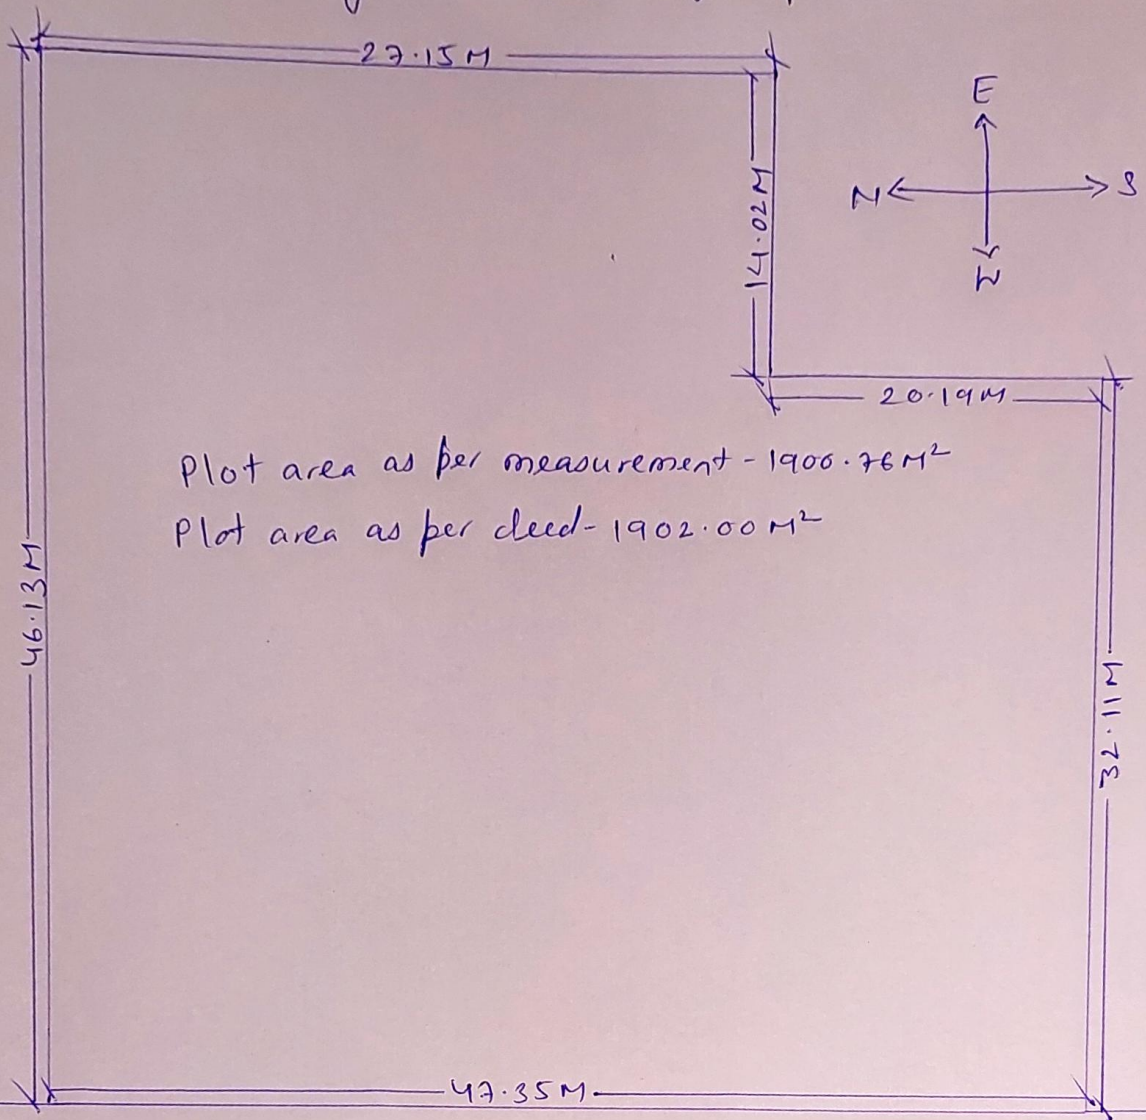 27.15M
E
14.02M
N
S
W
20.19M
Plot area as per measurement - 1900.76 M²
Plot area as per deed - 1902.00 M²
46.13M
32.11M
47.35M